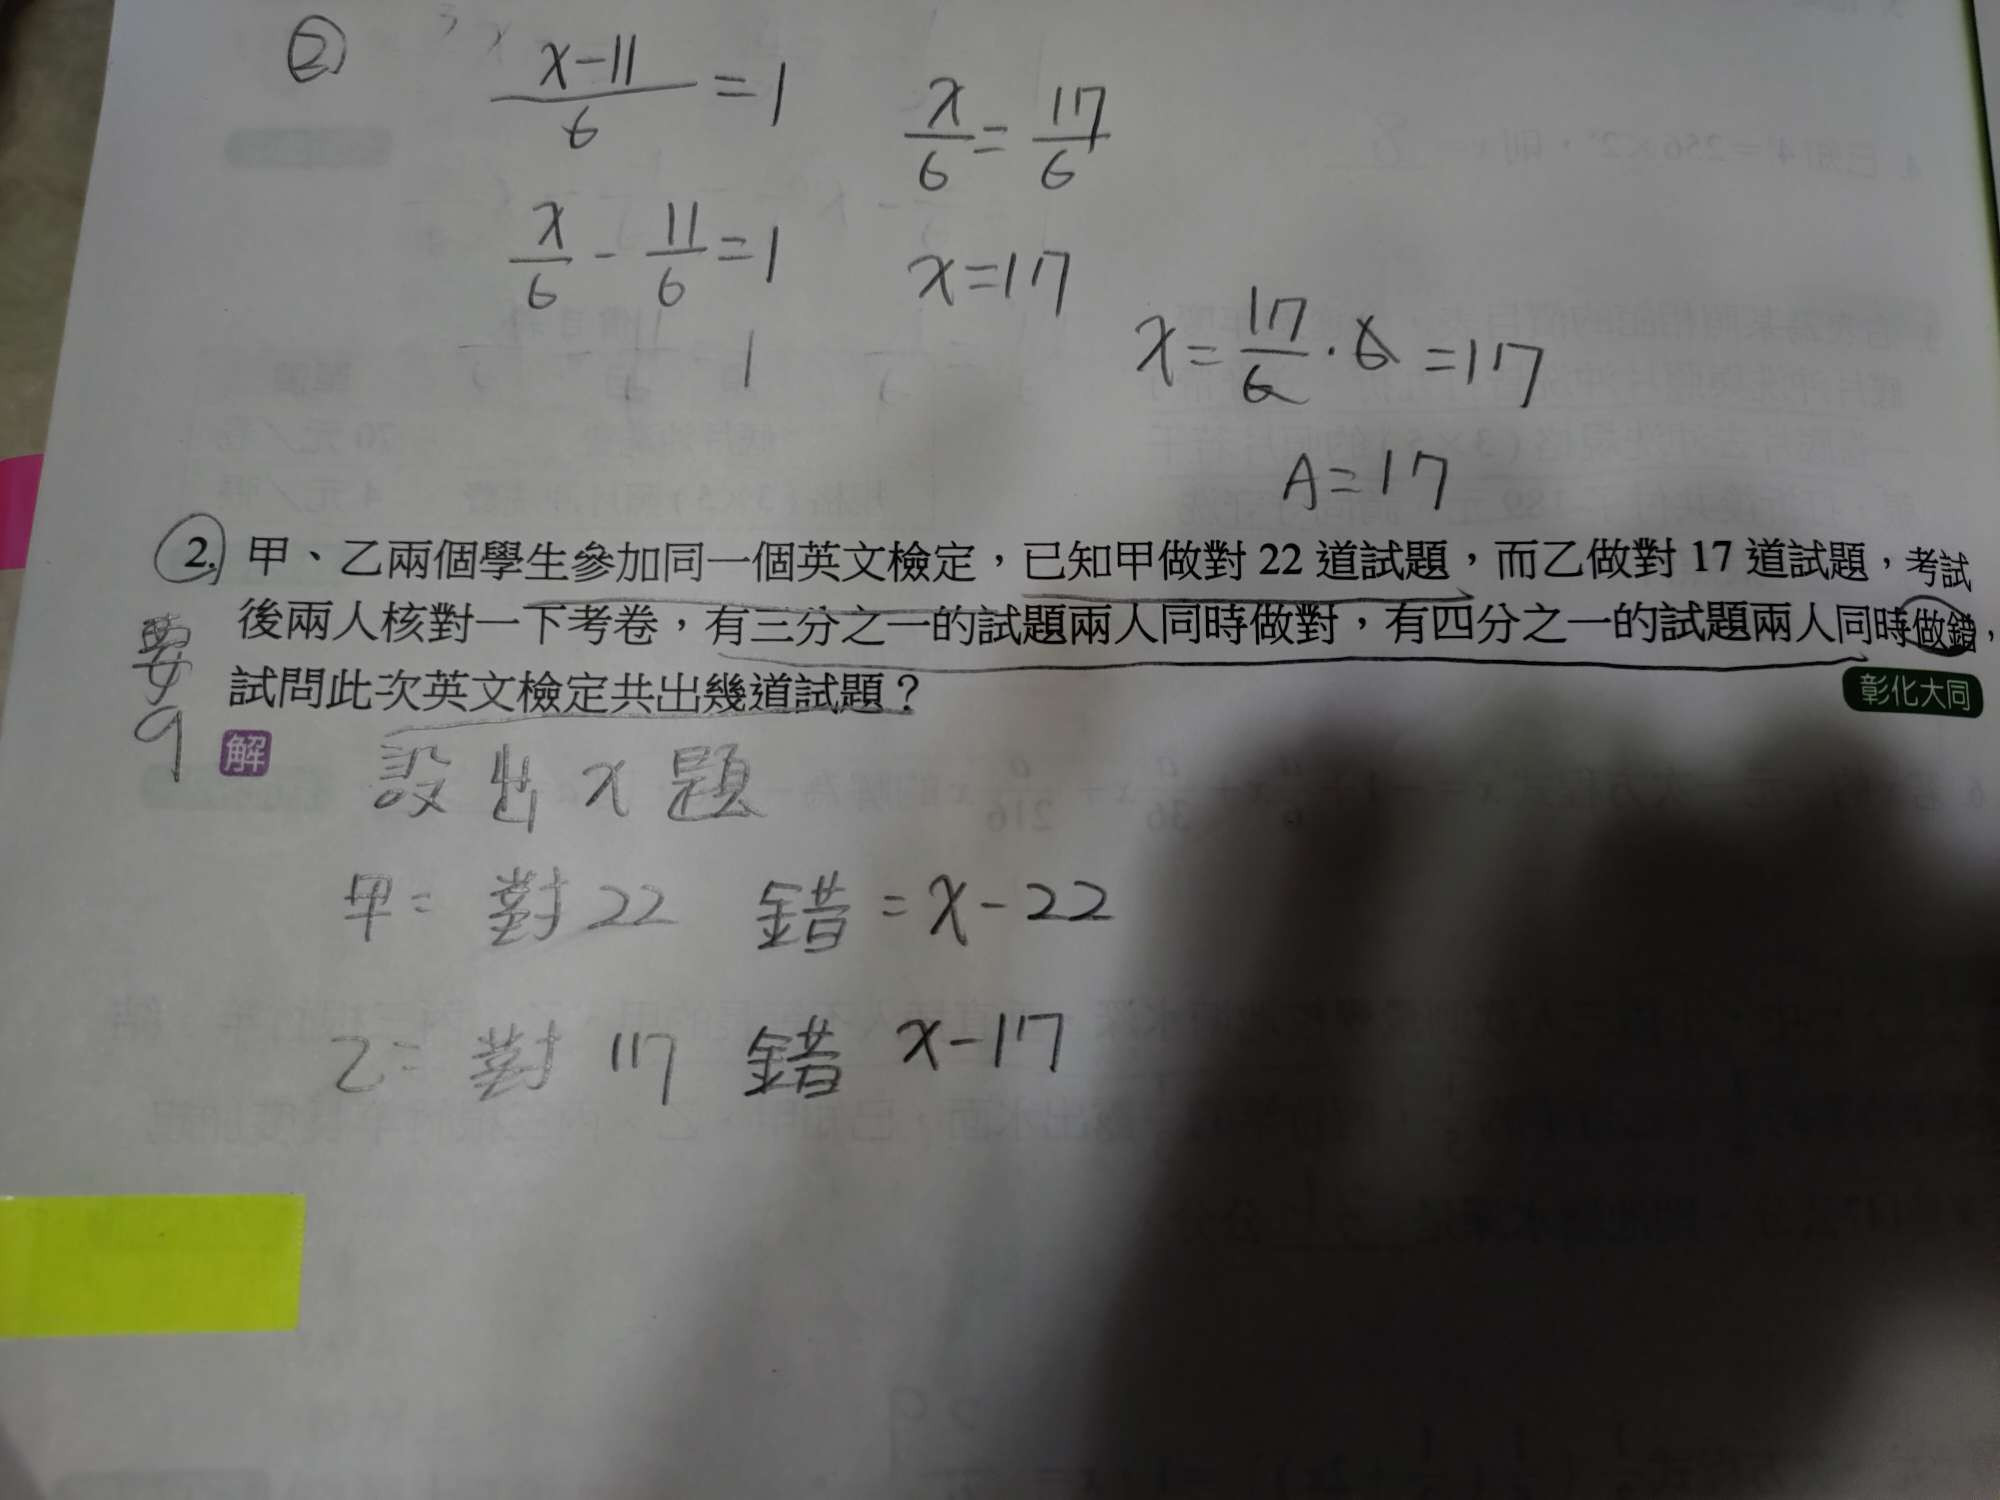 ②
x-11/6 = 1
x/6 = 17/6
x/6 - 11/6 = 1
x=17
x = 17/6 · 6 = 17
A=17
2. 甲、乙兩個學生參加同一個英文檢定，已知甲做對 22 道試題，而乙做對 17 道試題，考試
後兩人核對一下考卷，有三分之一的試題兩人同時做對，有四分之一的試題兩人同時做錯，
試問此次英文檢定共出幾道試題？
彰化大同
要
9
解
設出 x 題
甲= 對 22 錯 = x-22
乙= 對 17 錯 x-17